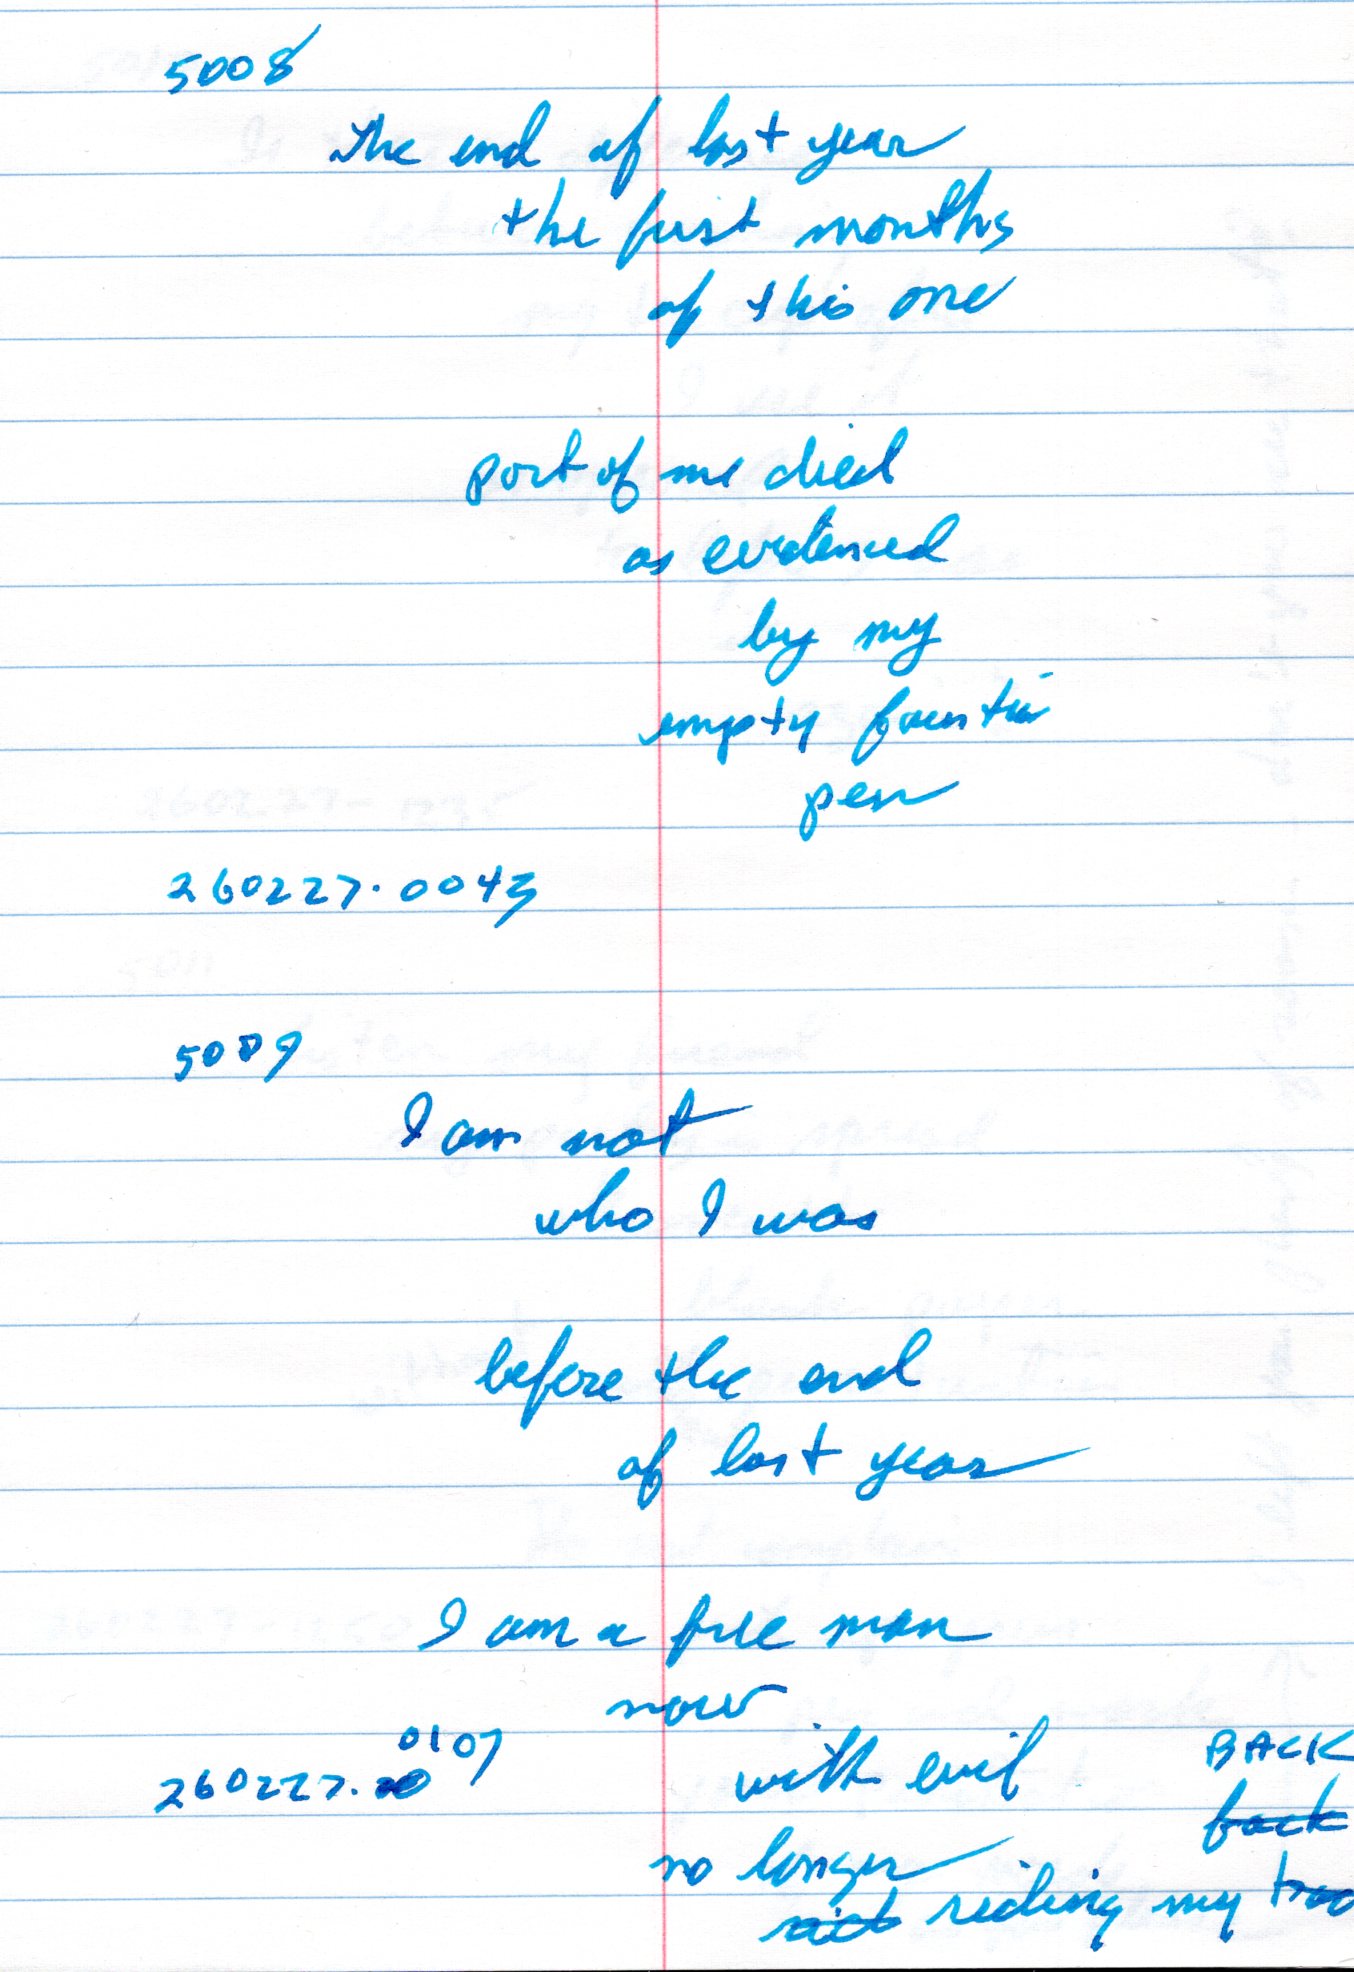 5008
The end of last year
the first months
of this one
part of me died
as evidenced
by my
empty fountin
pen
260227.0043
5009
I am not
who I was
before the end
of last year
I am a free man
now
0107
260227.
with evil
BACK
back
no longer
riding my